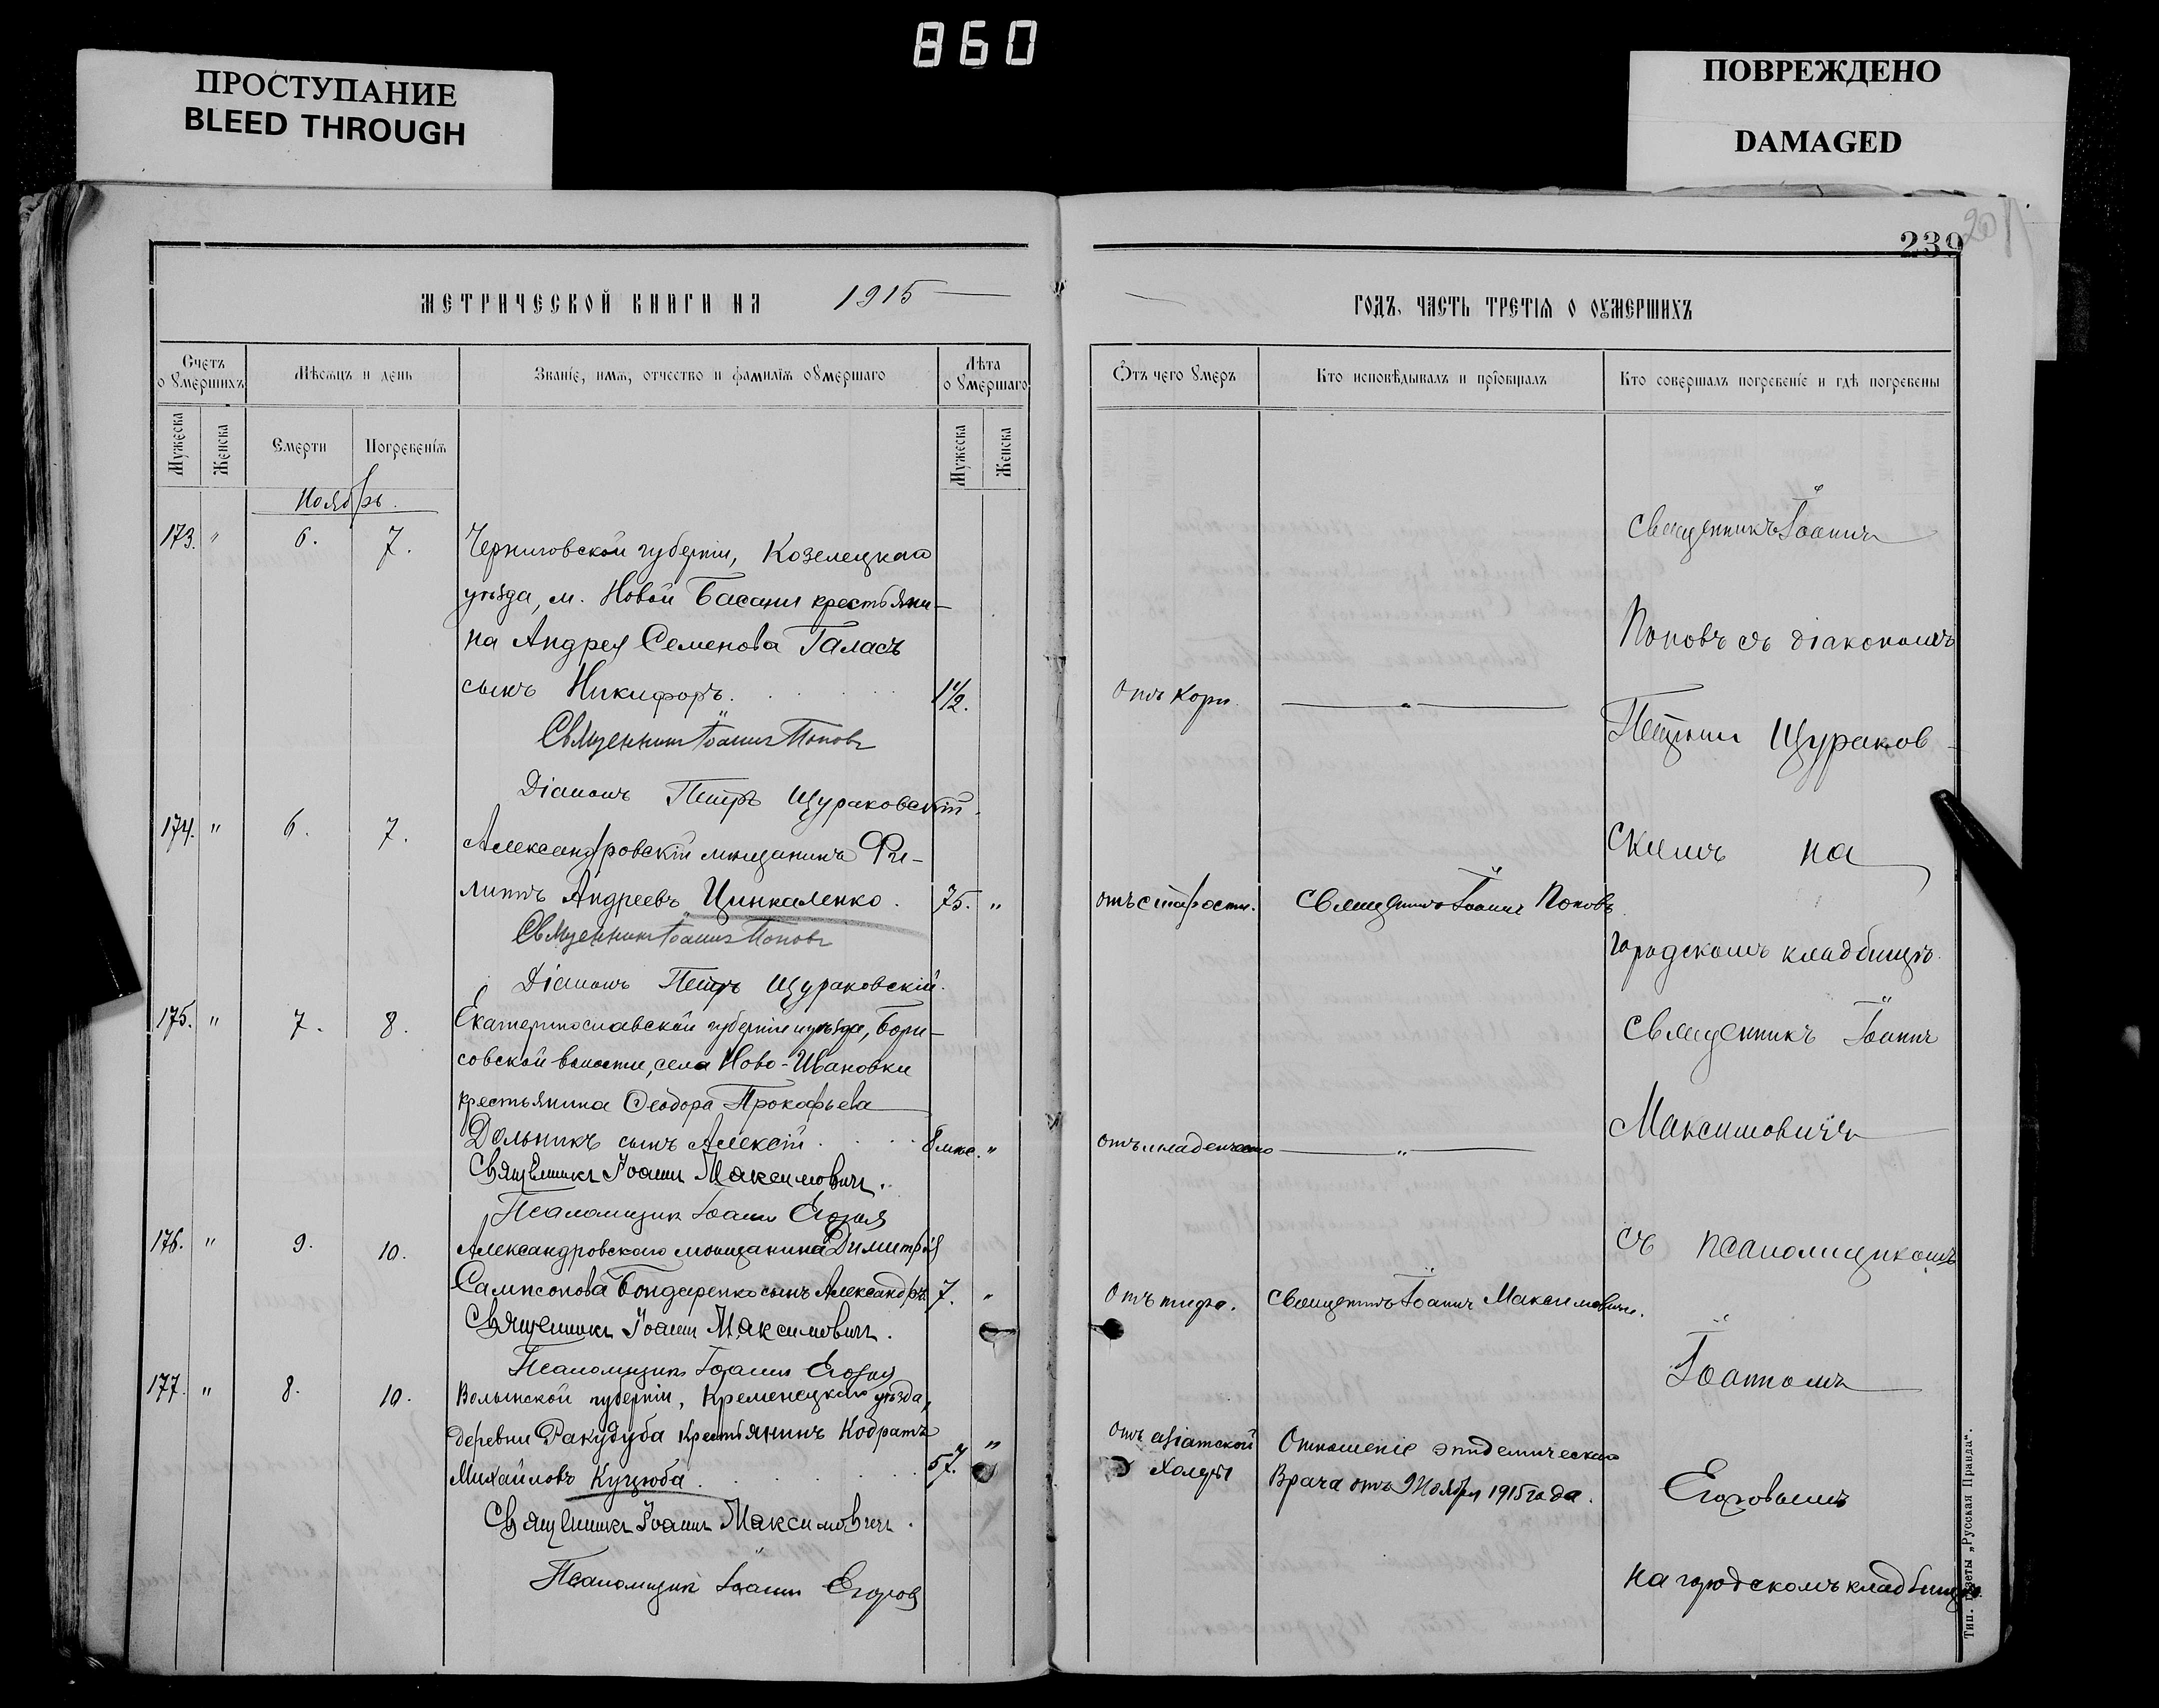 860
ПРОСТУПАНИЕ
BLEED THROUGH
ПОВРЕЖДЕНО
DAMAGED
239
МЕТРИЧЕСКОЙ КНИГИ НА 1915
Счетъ о умершихъ
Мѣсяцъ и день
Званіе, имя, отчество и фамилія умершаго
Лѣта о умершаго
Мужеска
Женска
Смерти
Погребенія
Мужеска
Женска
Ноябрь.
173. " 6. 7.
Черниговской губерніи, Козелецкаго
уѣзда, м. Новой Басани крестьяни-
на Андрея Семенова Галась
сынъ Никифоръ. 1 1/2.
Священникъ Іоаннъ Поповъ
Діаконъ Петръ Щураковскій.
174. " 6. 7.
Александровскій мѣщанинъ Фи-
липпъ Андреевъ Цинкаленко. 75. "
Священникъ Іоаннъ Поповъ
Діаконъ Петръ Щураковскій.
175. " 7. 8.
Екатеринославской губерніи и уѣзда, Бори-
совской волости, села Ново-Ивановки
крестьянина Ѳеодора Прокофьева
Дольникъ сынъ Алексій 8 мѣс. "
Священникъ Іоаннъ Максимовичъ.
Псаломщикъ Іоаннъ Егоровъ
176. " 9. 10.
Александровскаго мѣщанина Димитрія
Сампсонова Бондаренко сынъ Александръ 7. "
Священникъ Іоаннъ Максимовичъ.
Псаломщикъ Іоаннъ Егоровъ
177. " 8. 10.
Волынской губерніи, Кременецкаго уѣзда,
деревни Ракудуба крестьянинъ Кодратъ
Михайловъ Куцюба 57. "
Священникъ Іоаннъ Максимовичъ.
Псаломщикъ Іоаннъ Егоровъ
ГОДЪ, ЧАСТЬ ТРЕТІЯ О ОУМЕРШИХЪ
Отъ чего умеръ
Кто исповѣдывалъ и пріобщалъ
Кто совершалъ погребеніе и гдѣ погребены
отъ кори.
отъ старости. Священникъ Іоаннъ Поповъ
отъ младенчества
Отъ тифа. Священникъ Іоаннъ Максимовичъ.
отъ азіатской
Холеры
Отношеніе эпидемическаго
Врача отъ 9 Ноября 1915 года.
Священникъ Іоаннъ
Поповъ съ діакономъ
Петромъ Щураков-
скимъ на
городскомъ кладбищѣ.
Священникъ Іоаннъ
Максимовичъ
съ псаломщикомъ
Іоанномъ
Егоровымъ
на городскомъ кладбищѣ.
Тип. газеты „Русская Правда".